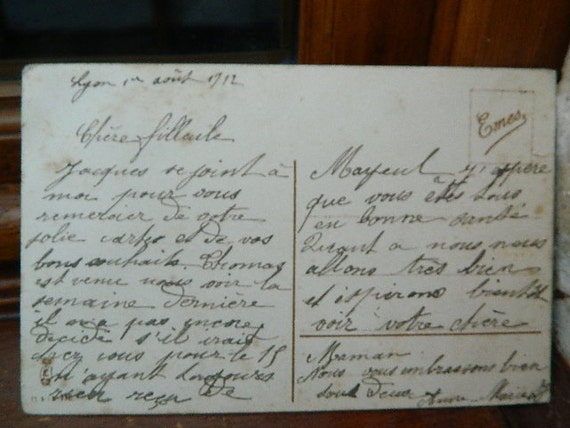 Lyon 1er août 1912
Chère filleule
Jacques se joint à
moi pour vous
remercier de votre
jolie carte et de vos
bons souhaits. Thomas
est venu nous voir la
semaine dernière
il n'a pas encore
décidé s'il irait
chez vous pour le 15
n'ayant toujours
rien reçu de
Emes
Mayeul j'espère
que vous êtes tous
en bonne santé
Quant a nous nous
allons très bien
et espérons bientôt
voir votre chère
Maman
Nous vous embrassons bien
tous deux Anne Marie